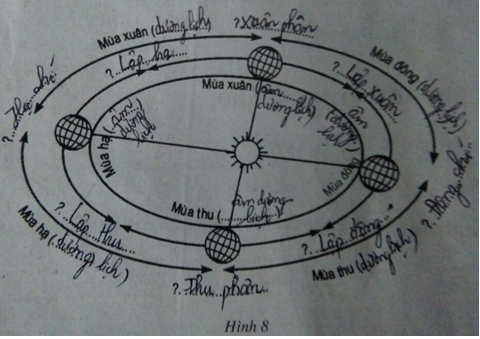 ?. xuân phân
Mùa xuân (dương lịch)
Mùa đông (dương lịch)
?...Lập hạ......
?..Lập xuân
?...Hạ chí.
Mùa xuân (âm.....lịch)
dương
Mùa hạ (Âm
dương
lịch
âm
(dương
lịch)
Mùa đông
?. Đông chí...
Mùa thu (......
âm dương
lịch..)
?..Lập...thu....
?. Lập đông...
Mùa hạ (dương lịch)
Mùa thu (dương lịch)
?.Thu phân..
Hình 8